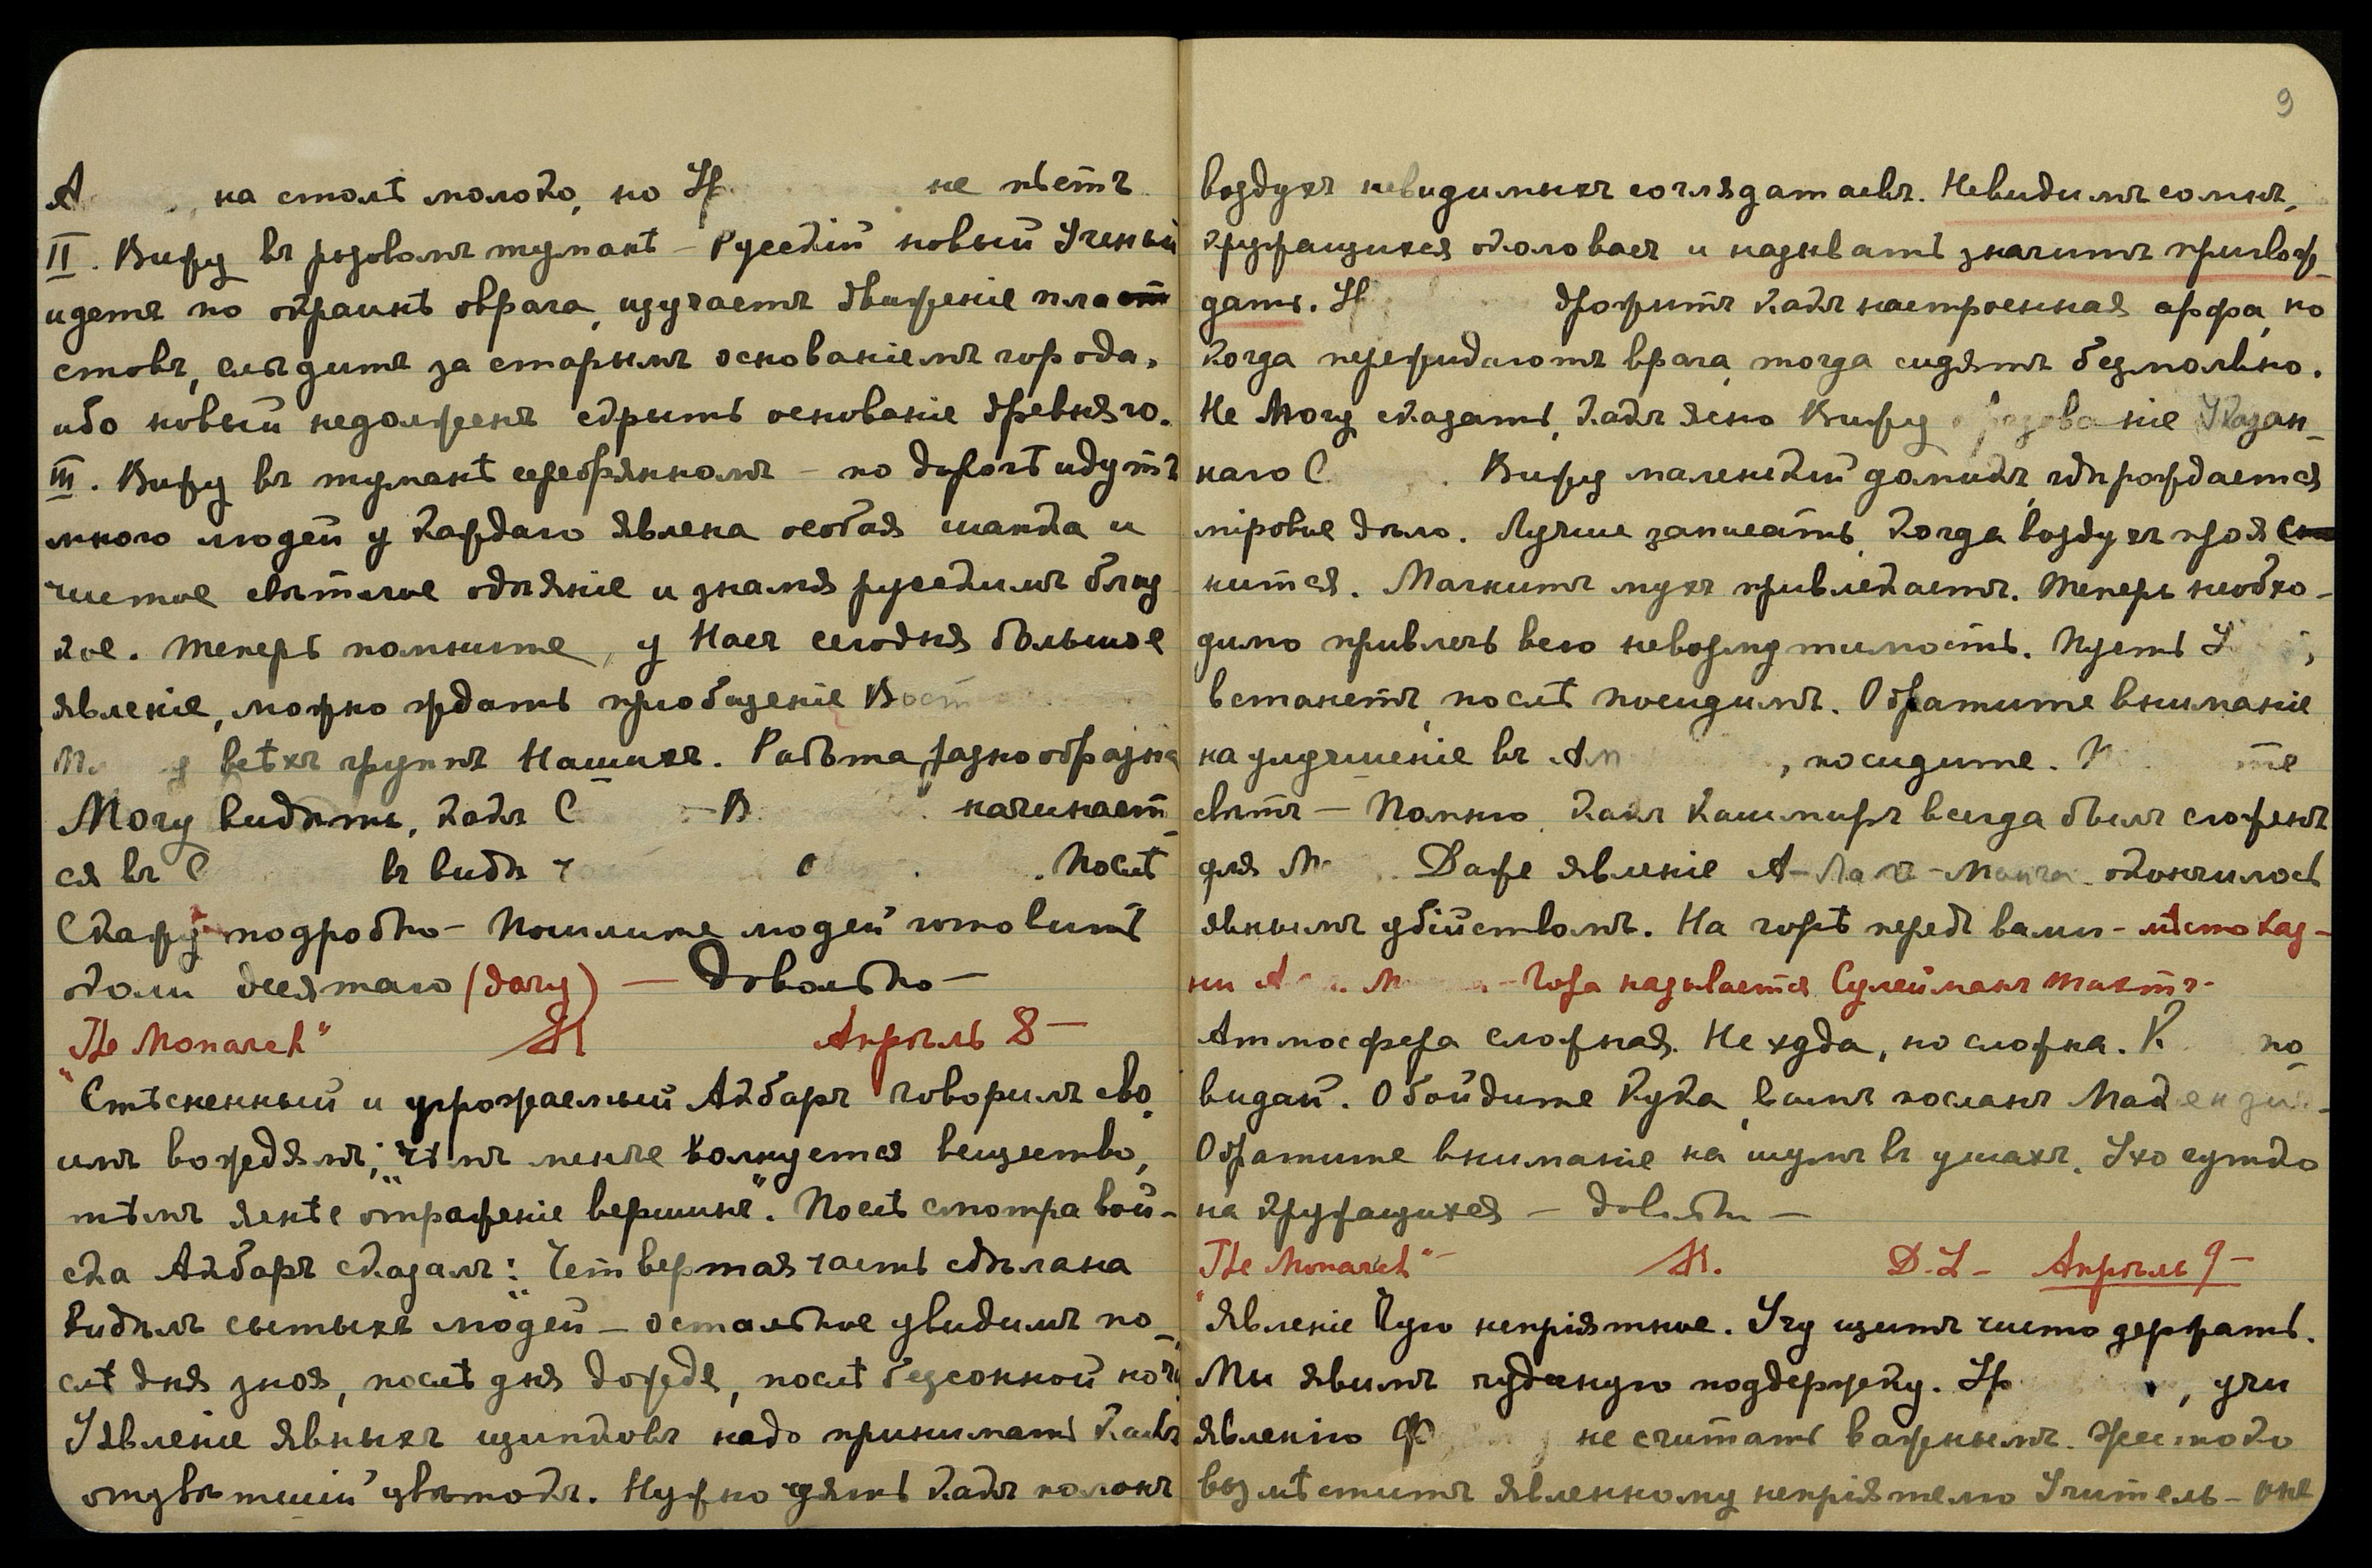 А на столѣ молоко, но Ур не пьетъ
II. Вижу въ розовомъ туманѣ – Русскій новый Ученый
идетъ по окраинѣ оврага, изучаетъ движеніе пла
стовъ, слѣдитъ за старымъ основаніемъ города,
ибо новый недолженъ скрыть основаніе древняго.
III. Вижу въ туманѣ серебрянномъ – по дорогѣ идутъ
много людей у каждаго явлена особая шапка и
чистое свѣтлое одѣяніе и знамя русскимъ близ
кое. Теперь помните, у Насъ сегодня большое
явленіе, можно ждать пріобщеніе Вост
всѣхъ группъ Нашихъ. Работа разнообразна
Могу видѣть, какъ С – В начинает-
ся въ С въ видѣ О . Послѣ
Скажу подробно – Пошлите людей готовить
около десятаго (дачу) – Довольно –
"The Monarch" М Апрѣль 8 –
"Стѣсненный и угрожаемый Акбаръ говорилъ сво
имъ вождямъ: "чѣмъ менѣе волнуется вещество,
тѣмъ яснѣе отраженіе вершинъ". Послѣ смотра вой-
ска Акбаръ сказалъ: "Четвертая часть сдѣлана
Видѣлъ сытыхъ людей – остальное увидимъ по-
слѣ дня зноя, послѣ дня дождя, послѣ безсонной ночи
Явленіе явныхъ щипковъ надо принимать какъ
отцвѣтшій цвѣтокъ. Нужно ждать какъ полонъ
9
воздухъ невидимыхъ соглядатаевъ. Невидимъ сонмъ,
кружащихся около васъ и называть значитъ пригвож-
дать. Ур дрожитъ какъ настроенная арфа, но
когда пережидаютъ врага, тогда сидятъ безмолвно.
Не Могу сказать, какъ ясно Вижу образованіе Указан-
наго С . Вижу маленькій домикъ, гдѣ рождается
міровое дѣло. Лучше записать, когда воздухъ прояс
нится. Магнитъ мухъ привлекаетъ. Теперь необхо-
димо привлечь всю невозмутимость. Пусть У ,
встанетъ, послѣ посидимъ. Обратите вниманіе
на улучшеніе въ Ам , посидите. те
свѣтъ – Помню, какъ Кашмиръ всегда былъ сложенъ
для М . Даже явленіе А-Лалъ-Минга окончилось
явнымъ убійствомъ. На горѣ передъ вами – мѣсто каз-
ни А М – Гора называется Сулейманъ Тахтъ-
Атмосфера сложная. Не худа, но сложна. К по
видай. Обойдите Кука, вамъ посланъ Макензи-
Обратите вниманіе на шумъ въ ушахъ. Ухо чутко
на кружащихся – довольно –
"The Monarch" – М. D.L – Апрѣль 9 –
"Явленіе Чую непріятное. Учу щитъ чисто держать.
Мы явимъ чудесную поддержку. Ур , учи
явленію Ф не считать важнымъ. Жестоко
возмѣститъ явленному непріятелю Учитель – оне